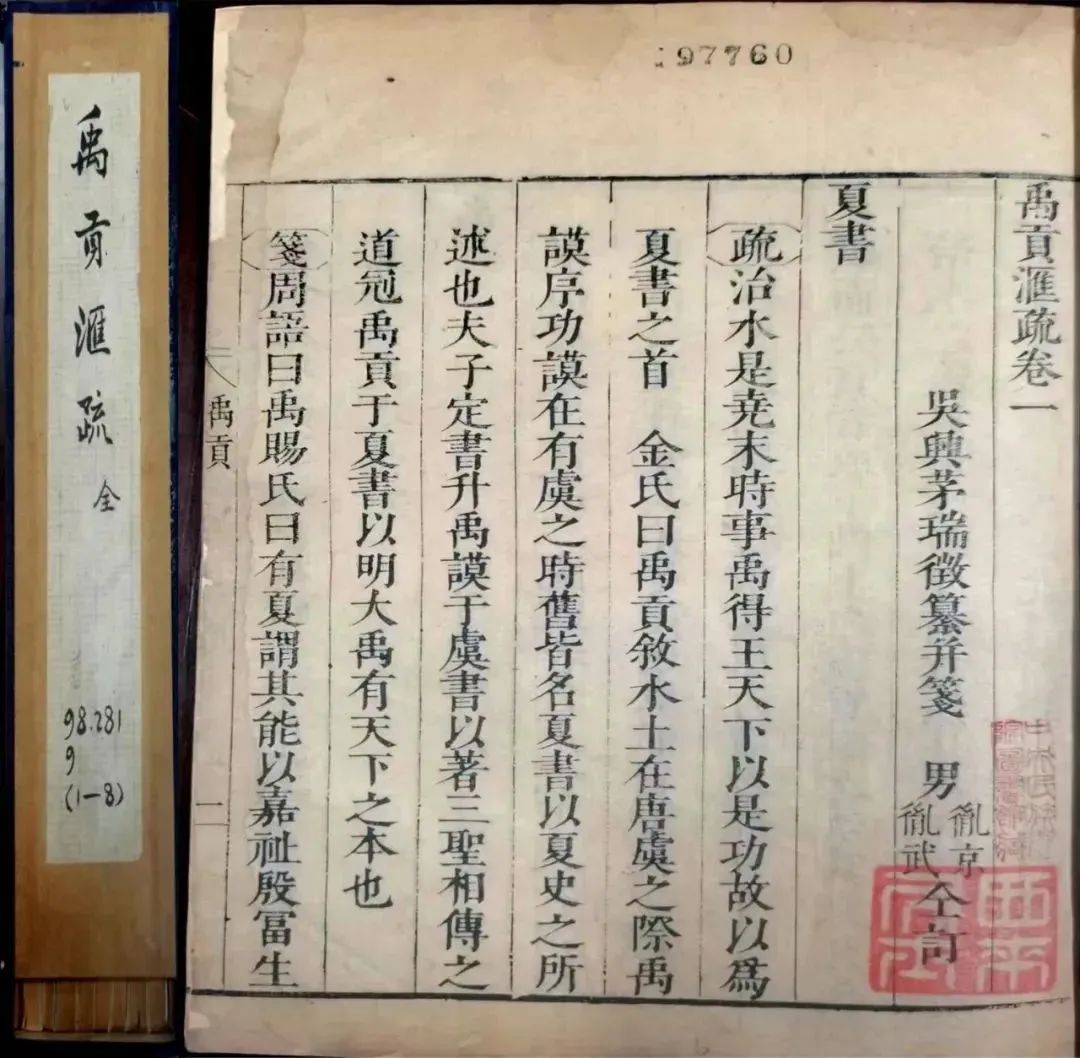 禹貢滙疏
全
98.281
9
(1-8)
197760
禹貢滙疏卷一
吳興茅瑞徵纂并箋 男 胤京 胤武 仝訂
夏書
疏治水是堯末時事禹得王天下以是功故以爲
夏書之首 金氏曰禹貢敘水土在唐虞之際禹
謨序功謨在有虞之時舊皆名夏書以夏史之所
述也夫子定書升禹謨于虞書以著三聖相傳之
道冠禹貢于夏書以明大禹有天下之本也
箋周語曰禹賜氏曰有夏謂其能以嘉祉殷富生
禹貢
一